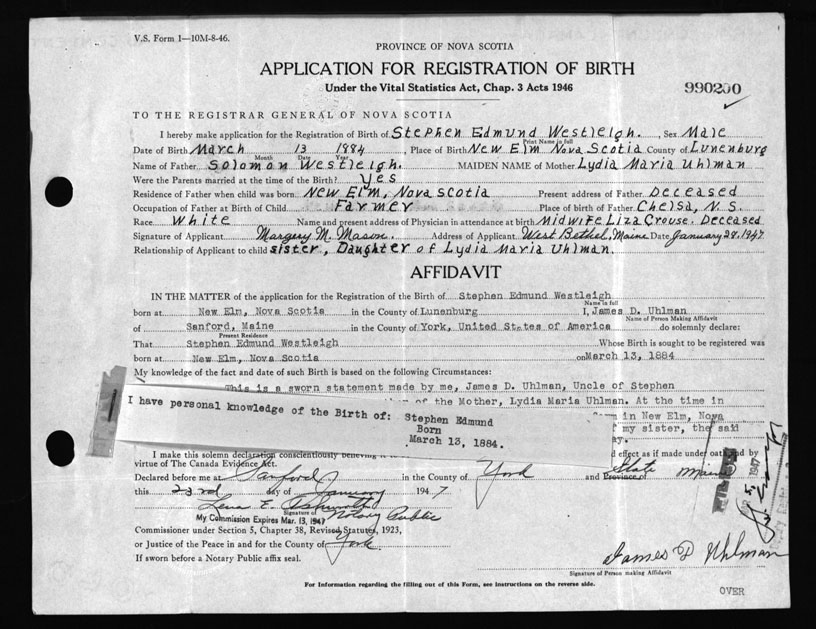 V.S. Form 1—10M-8-46.
PROVINCE OF NOVA SCOTIA
APPLICATION FOR REGISTRATION OF BIRTH
Under the Vital Statistics Act, Chap. 3 Acts 1946
990200
TO THE REGISTRAR GENERAL OF NOVA SCOTIA
I hereby make application for the Registration of Birth of Stephen Edmund Westleigh. , Sex Male
Print Name in full
Date of Birth March 13 1884 , Place of Birth New Elm Nova Scotia County of Lunenburg
Month Date Year
Name of Father Solomon Westleigh. MAIDEN NAME of Mother Lydia Maria Uhlman
Were the Parents married at the time of the Birth? Yes
Residence of Father when child was born New Elm, Nova Scotia Present address of Father Deceased
Occupation of Father at Birth of Child Farmer Place of birth of Father Chelsa, N.S.
Race White Name and present address of Physician in attendance at birth Midwife Liza Crouse. Deceased
Signature of Applicant Margery M. Mason. Address of Applicant West Bethel, Maine Date January 29, 1947
Relationship of Applicant to child sister, Daughter of Lydia Maria Uhlman.
AFFIDAVIT
IN THE MATTER of the application for the Registration of the Birth of Stephen Edmund Westleigh
Name in full
born at New Elm, Nova Scotia in the County of Lunenburg I, James D. Uhlman
Name of Person Making Affidavit
of Sanford, Maine in the County of York, United States of America do solemnly declare:
Present Residence
That Stephen Edmund Westleigh Whose Birth is sought to be registered was
born at New Elm, Nova Scotia on March 13, 1884
My knowledge of the fact and date of such Birth is based on the following Circumstances:
This is a sworn statement made by me, James D. Uhlman, Uncle of Stephen
of the Mother, Lydia Maria Uhlman. At the time in
in New Elm, Nova
my sister, the said
I have personal knowledge of the Birth of: Stephen Edmund
Born
March 13, 1884.
I make this solemn declaration conscientiously believing it effect as if made under oath and by
virtue of The Canada Evidence Act.
Declared before me at Sanford in the County of York and Province of State Maine
this 23rd day of January 1947
Lena E. Ashworth
Signature of
Notary Public
My Commission Expires Mar. 13, 1947
Commissioner under Section 5, Chapter 38, Revised Statutes, 1923,
or Justice of the Peace in and for the County of York
If sworn before a Notary Public affix seal.
James D Uhlman
Signature of Person making Affidavit
For Information regarding the filling out of this Form, see instructions on the reverse side.
OVER